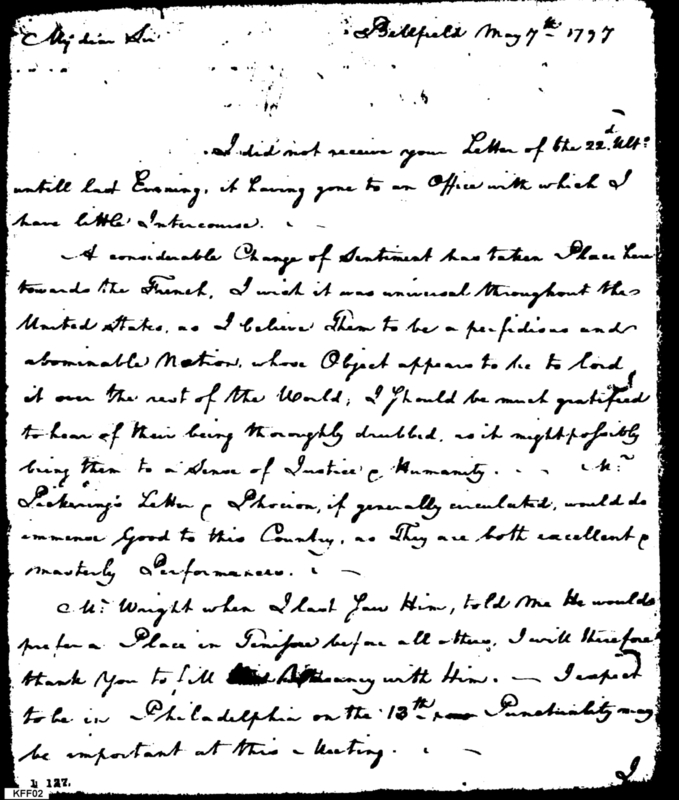 My dear Sir Bellfield May 7th 1797
I did not receive your Letter of the 22d. Ulto:
untill last Evening, it having gone to an Office with which I
have little Intercourse.
A considerable Change of Sentiment has taken Place here
towards the French, I wish it was universal throughout the
United States, as I believe Them to be a perfidious and
abominable Nation, whose Object appears to be to lord
it over the rest of the World; I Should be much gratified
to hear of their being thoroughly drubbed, as it might possibly
bring them to a Sense of Justice & Humanity. Mr.
Pickering's Letter & Phocion, if generally circulated, would do
immense Good to this Country, as They are both excellent &
masterly Performances.
Mr. Wright when I last Saw Him, told me He would
prefer a Place in before all others, I will therefore
thank You to fill with Him. I expect
to be in Philadelphia on the 13th Punctuality may
be important at this Meeting.
I
1 127.
KFF02